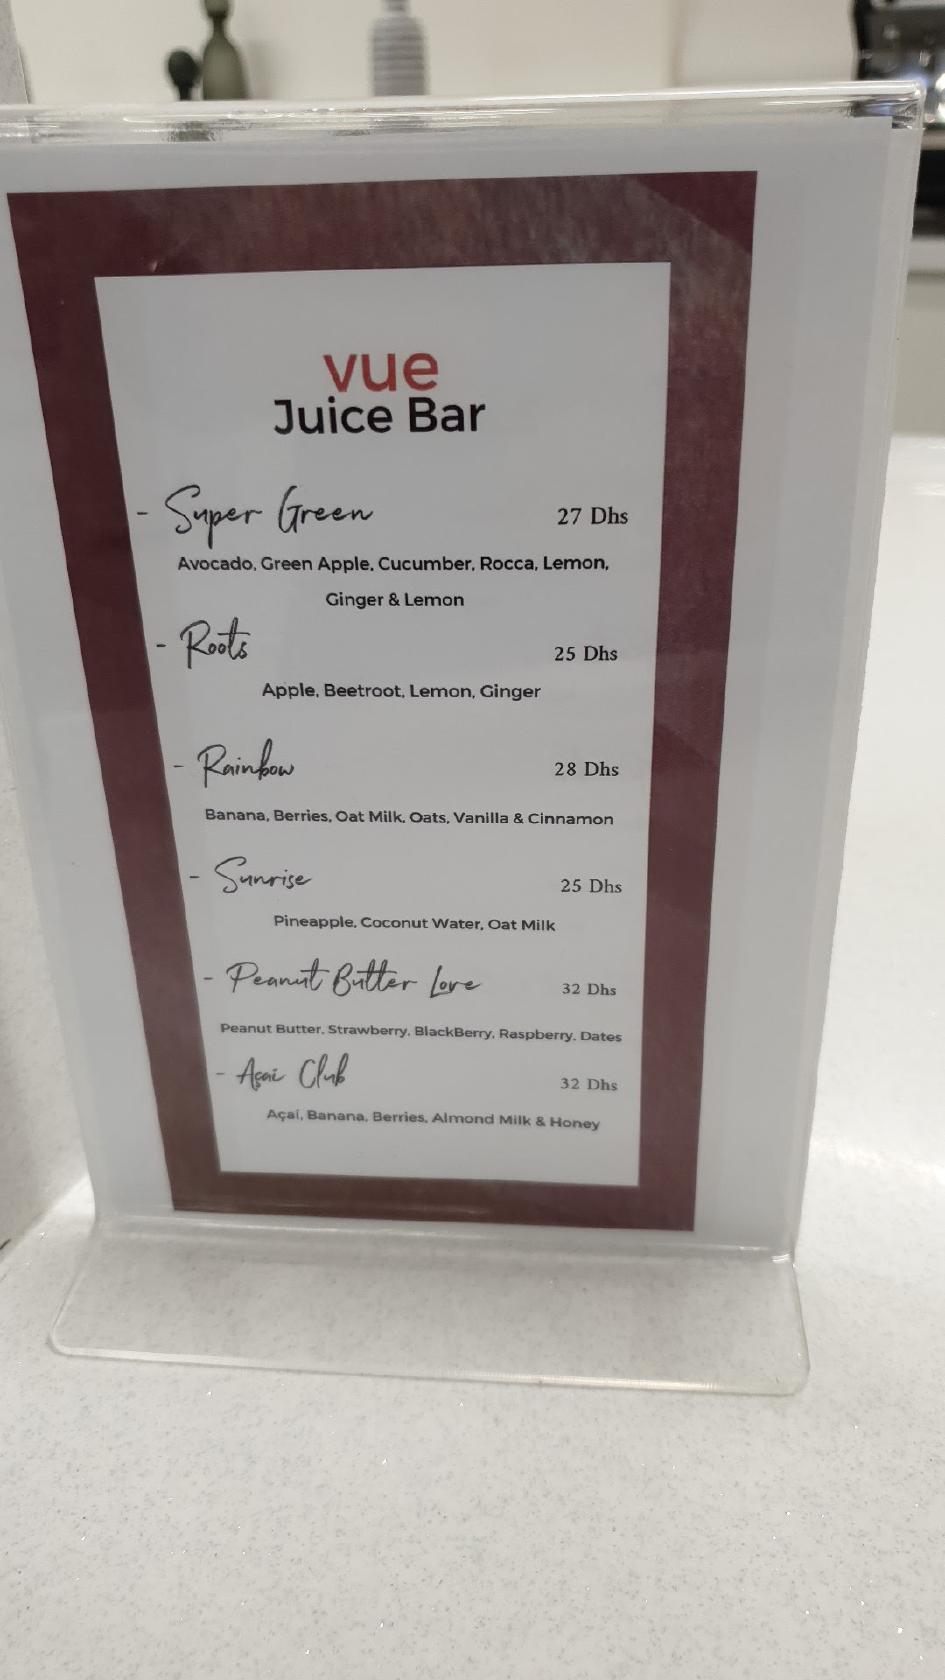 vue
Juice Bar
- Super Green 27 Dhs
Avocado, Green Apple, Cucumber, Rocca, Lemon,
Ginger & Lemon
- Roots 25 Dhs
Apple, Beetroot, Lemon, Ginger
- Rainbow 28 Dhs
Banana, Berries, Oat Milk, Oats, Vanilla & Cinnamon
- Sunrise 25 Dhs
Pineapple, Coconut Water, Oat Milk
- Peanut Butter Love 32 Dhs
Peanut Butter, Strawberry, BlackBerry, Raspberry, Dates
- Açai Club 32 Dhs
Açaí, Banana, Berries, Almond Milk & Honey